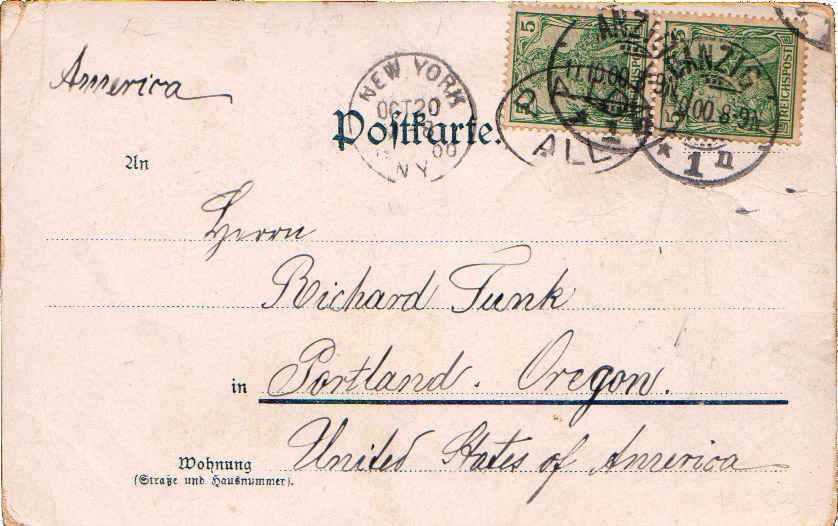 America
NEW YORK
OCT 20
00
N.Y.
5
REICHSPOST
DANZIG
11.10.00
* 1 n
DANZIG
.00.8-9V.
* 1 n
ALL
Postkarte.
An
Herrn
Richard Funk
in Portland. Oregon.
United States of America
Wohnung
(Straße und Hausnummer).